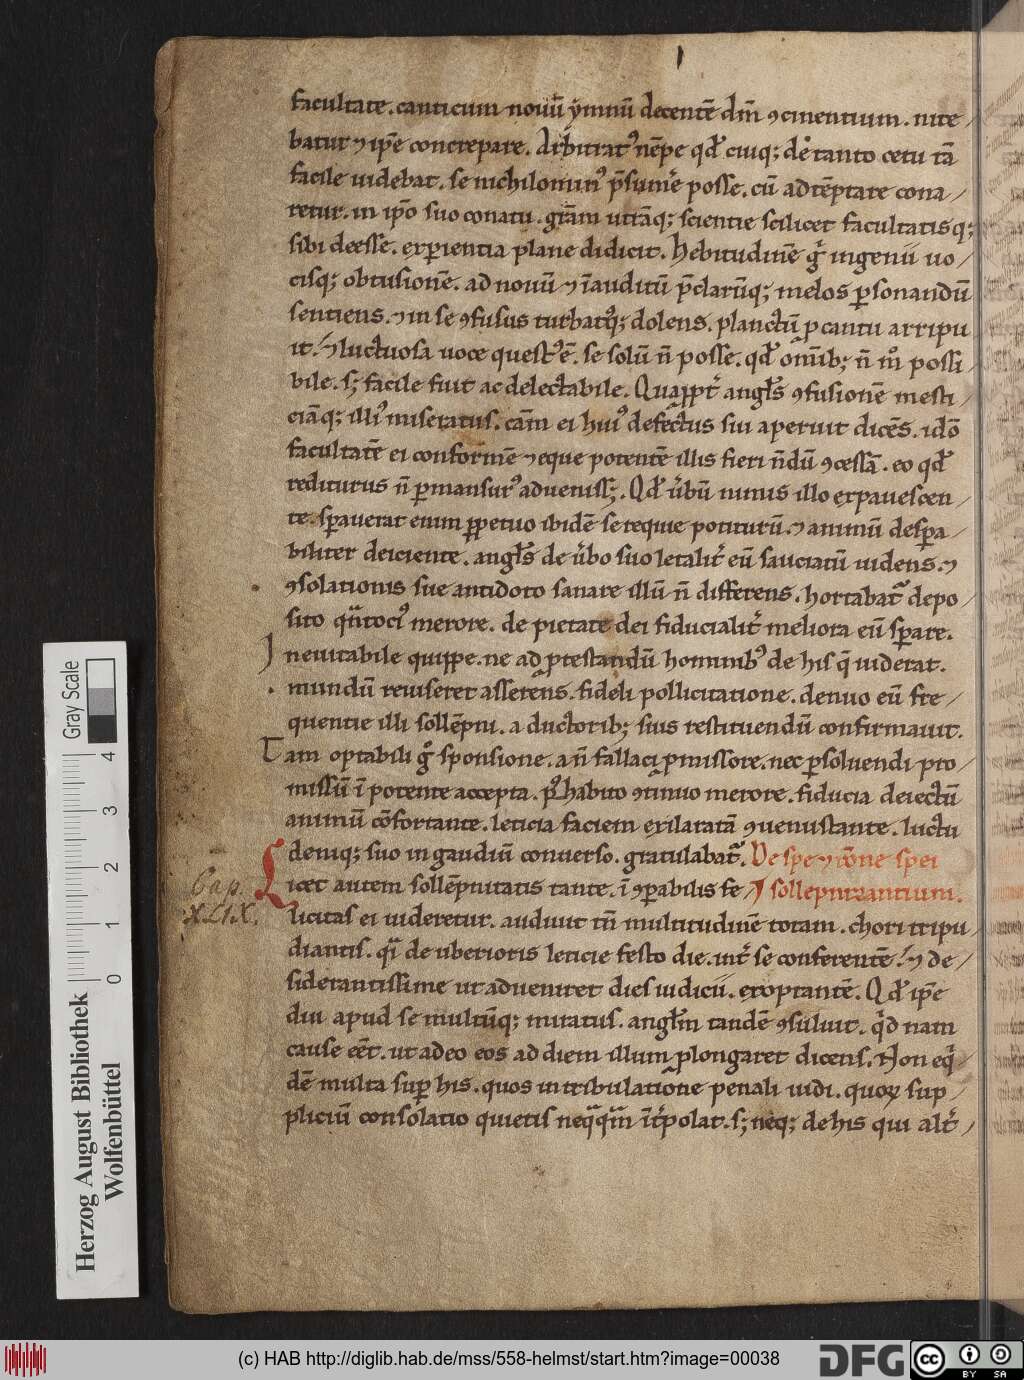 facultate. canticum nouū ẏmnū decentē dm̄ ꝯcinentium. nite
batur ⁊ ip̄e concrepare. Arbitrat᷒ nēpe qd̄ cuiq; de tanto cetu tā
facile uidebat. se nichilomin᷒ p̄sum̄e posse. cū adtēptare cona
retur. in ip̄o suo conatu. grām utrāq; scientie scilicet facultatisq;
sibi deesse. exꝑientia plane didicit. hebitudinē g̊ ingenii uo
cisq; obtusionē. ad nouū ⁊ īauditū p̄clarūq; melos ꝑsonandū
sentiens. ⁊ in se ꝯfusus turbatq᷒; dolens. planctū ꝓ cantu arripu
it. ⁊ luctuosa uoce quest᷒ ē. se solū n̄ posse. qd̄ omīb; n̄ m̊ possi
bile. s; facile fuit ac delectabile. Quappt̄ angl̄s ꝯfusionē mesti
ciāq; illi᷒ miseratus. cām ei hui᷒ defectus sui aperuit dicēs. idō
facultatē ei conformē ⁊ eque potentē illis fieri n̄dū ꝯcessā. eo qd̄
rediturus n̄ ꝑmansur᷒ aduenisś;. Qd̄ ūbū nimis illo expauescen
te. sꝑauerat enim ꝑpetuo ibidē se requie potiturū. ⁊ animū desꝑa
biliter deiciente. angl̄s de ūbo suo letalit̄ eū sauciatū uidens. ⁊
ꝯsolationis sue antidoto sanare illū n̄ differens. hortabat᷑ depo
sito qn̄toci᷒ merore. de pietate dei fiducialit̄ meliora eū sꝑare.
Ineuitabile quippe. ne ad ꝓtestandū hominib᷒ de his q̄ uiderat.
mundū reuiseret asserens. fideli pollicitatione. denuo eū fre
quentie illi sollēpni. a ductorib; suis restituendū confirmauit.
Tam optabili g̊ sponsione. a n̄ fallaci ꝓmissore. nec ꝑsoluendi pro
missū ī potente accepta. p᷒ habito ꝯtinuo merore. fiducia deiectū
animū cōfortante. leticia faciem exilaratā ꝯuenustante. luctu
deniq; suo in gaudiū conuerso. gratulabat᷑. De spe ⁊ cōne spei
Cap. Licet autem sollēpnitatis tante. ī ꝯparabilis fe sollepnizantium.
XLIX. licitas ei uideretur. audiuit tn̄ multitudinē totam. chori tripu
diantis. qi̅ de uberioris leticie festo die. int̄ se conferentē. ⁊ de
siderantissime ut adueniret dies iudicii. exoptantē. Qd̄ ip̄e
diu apud se multūq; miratus. angl̄m tandē ꝯsuluit. qd̄ nam
cause eēt. ut adeo eos ad diem illum ꝓlongaret dicens. Non eq̄
dē multa suꝑ his. quos in tribulatione penali uidi. quoꝝ sup
pliciū consolatio quietis neqq̄m īt̄polat. s; neq; de his qui alt̄
Gray Scale
0 1 2 3 4
Herzog August Bibliothek
Wolfenbüttel
(c) HAB http://diglib.hab.de/mss/558-helmst/start.htm?image=00038
DFG
cc BY SA